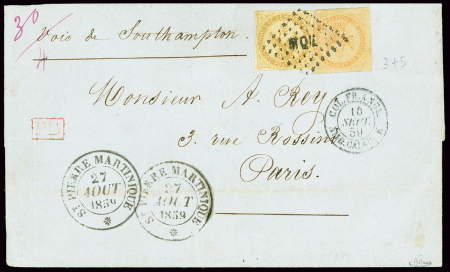 30
Voie de Southampton.
MQE
3+5
Monsieur A. Rey
3 rue Rossini
Paris.
PD
COL. FR. ANGL.
15
SEPT.
59
ST PIERRE MARTINIQUE
27
AOUT
1859
ST PIERRE MARTINIQUE
27
AOUT
1859